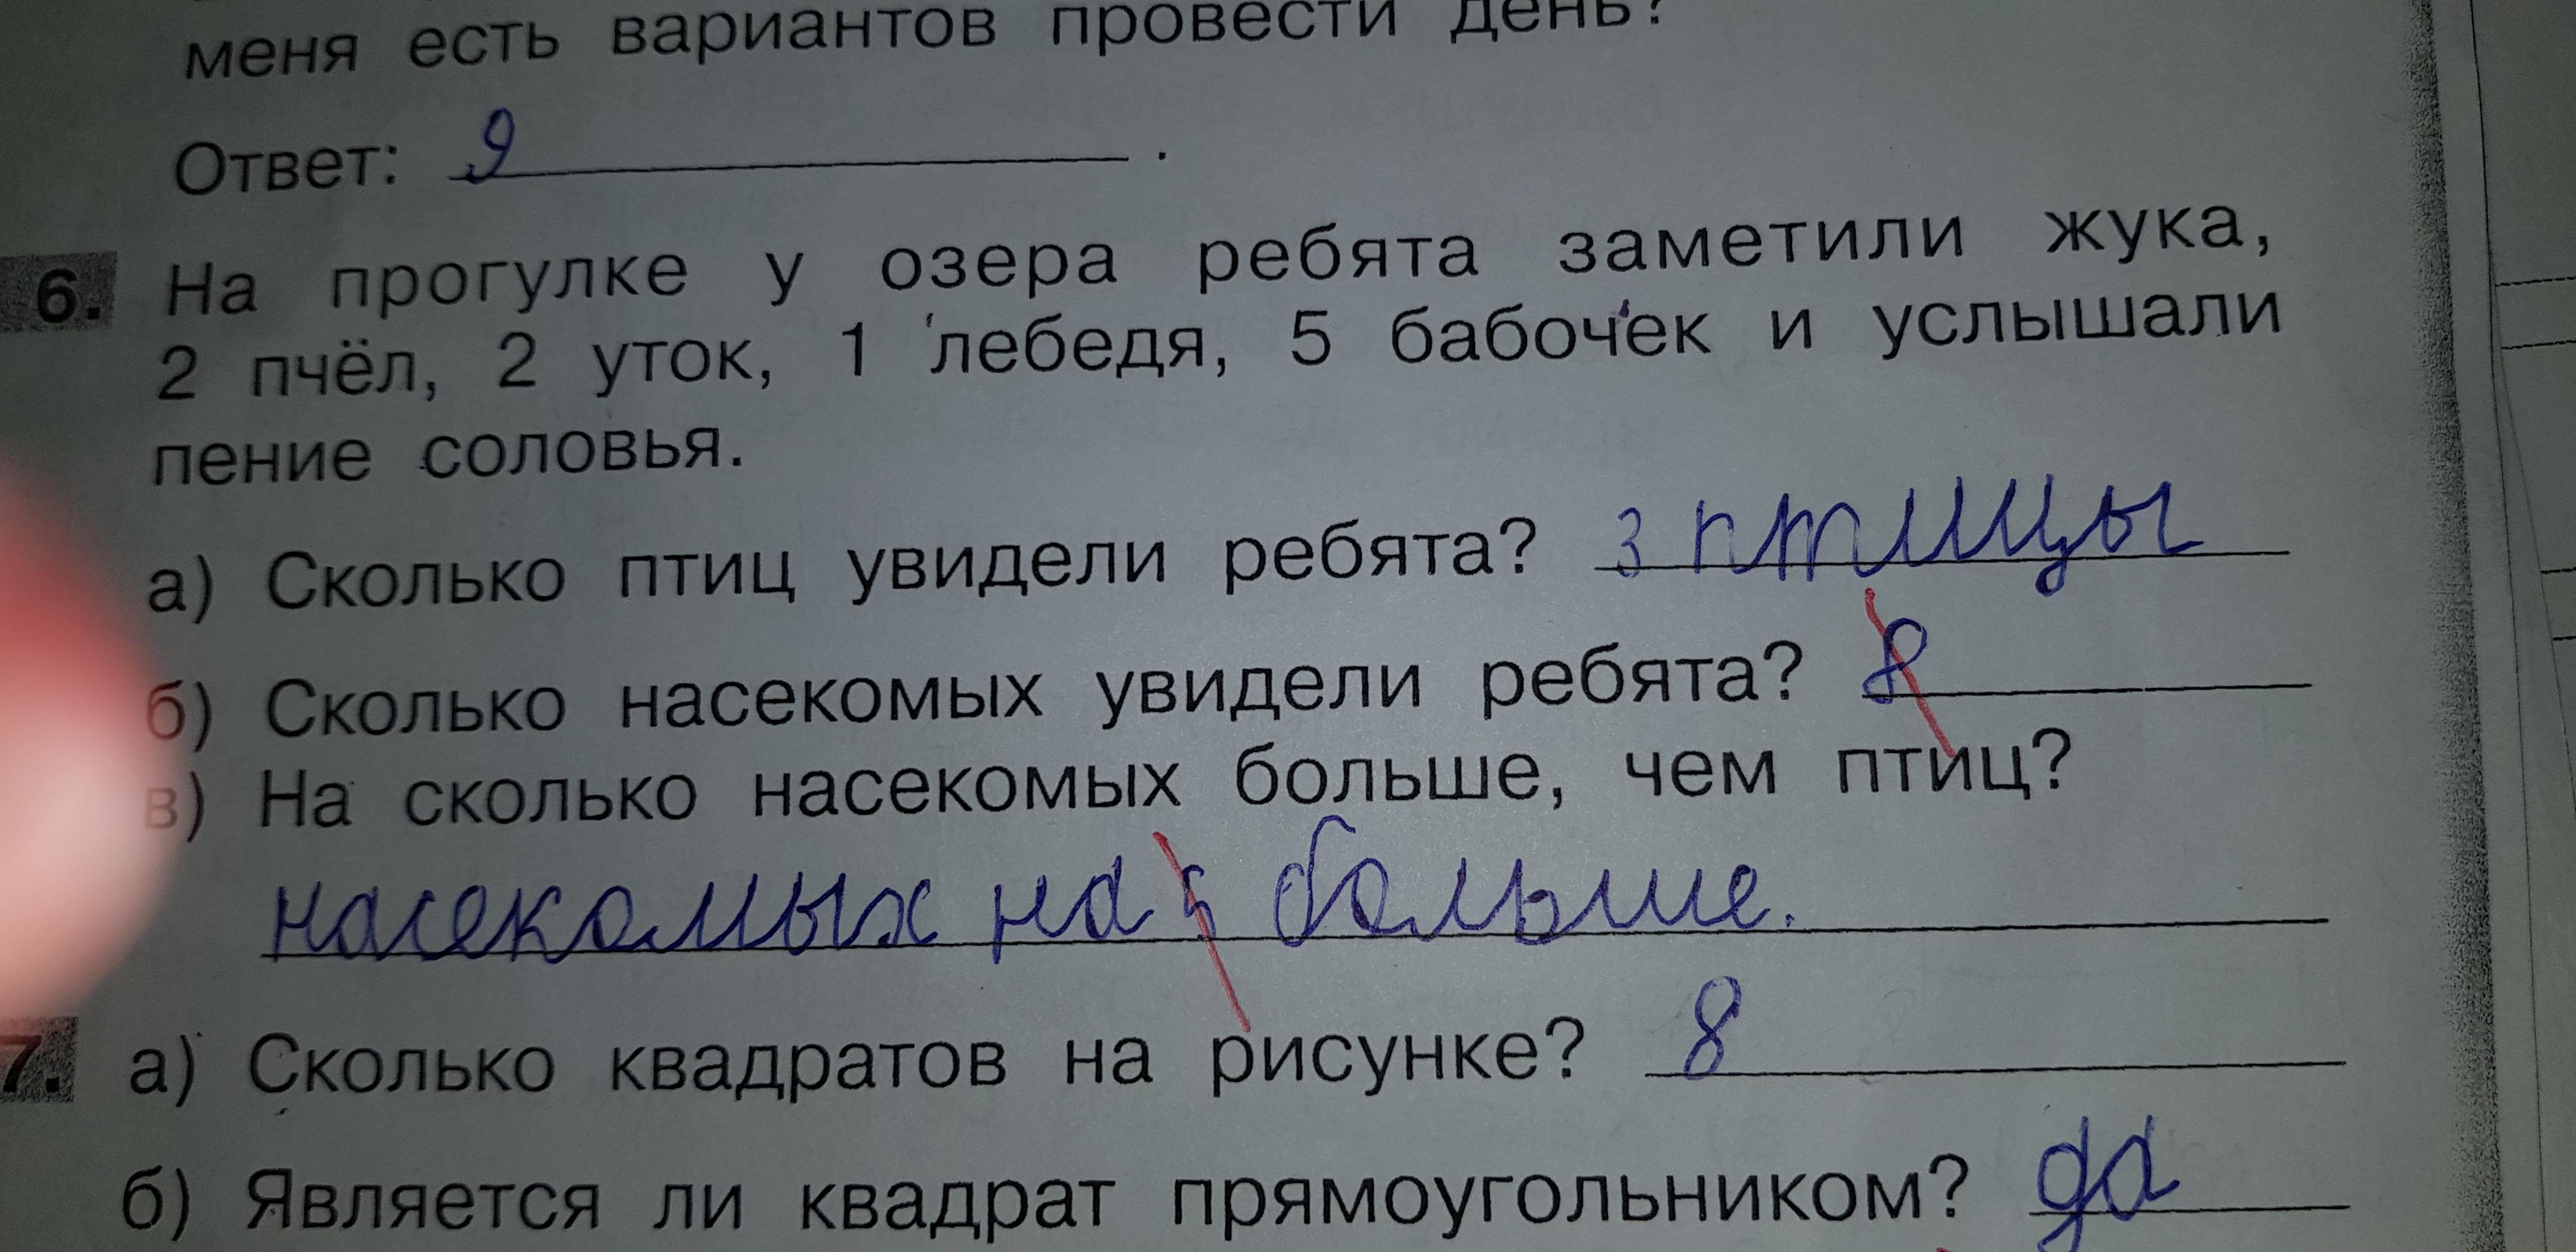 меня есть вариантов провести день?
Ответ: 9 .
6. На прогулке у озера ребята заметили жука,
2 пчёл, 2 уток, 1 лебедя, 5 бабочек и услышали
пение соловья.
а) Сколько птиц увидели ребята? 3 птицы
б) Сколько насекомых увидели ребята? 8
в) На сколько насекомых больше, чем птиц?
насекомых на 5 больше.
7. а) Сколько квадратов на рисунке? 8
б) Является ли квадрат прямоугольником? да